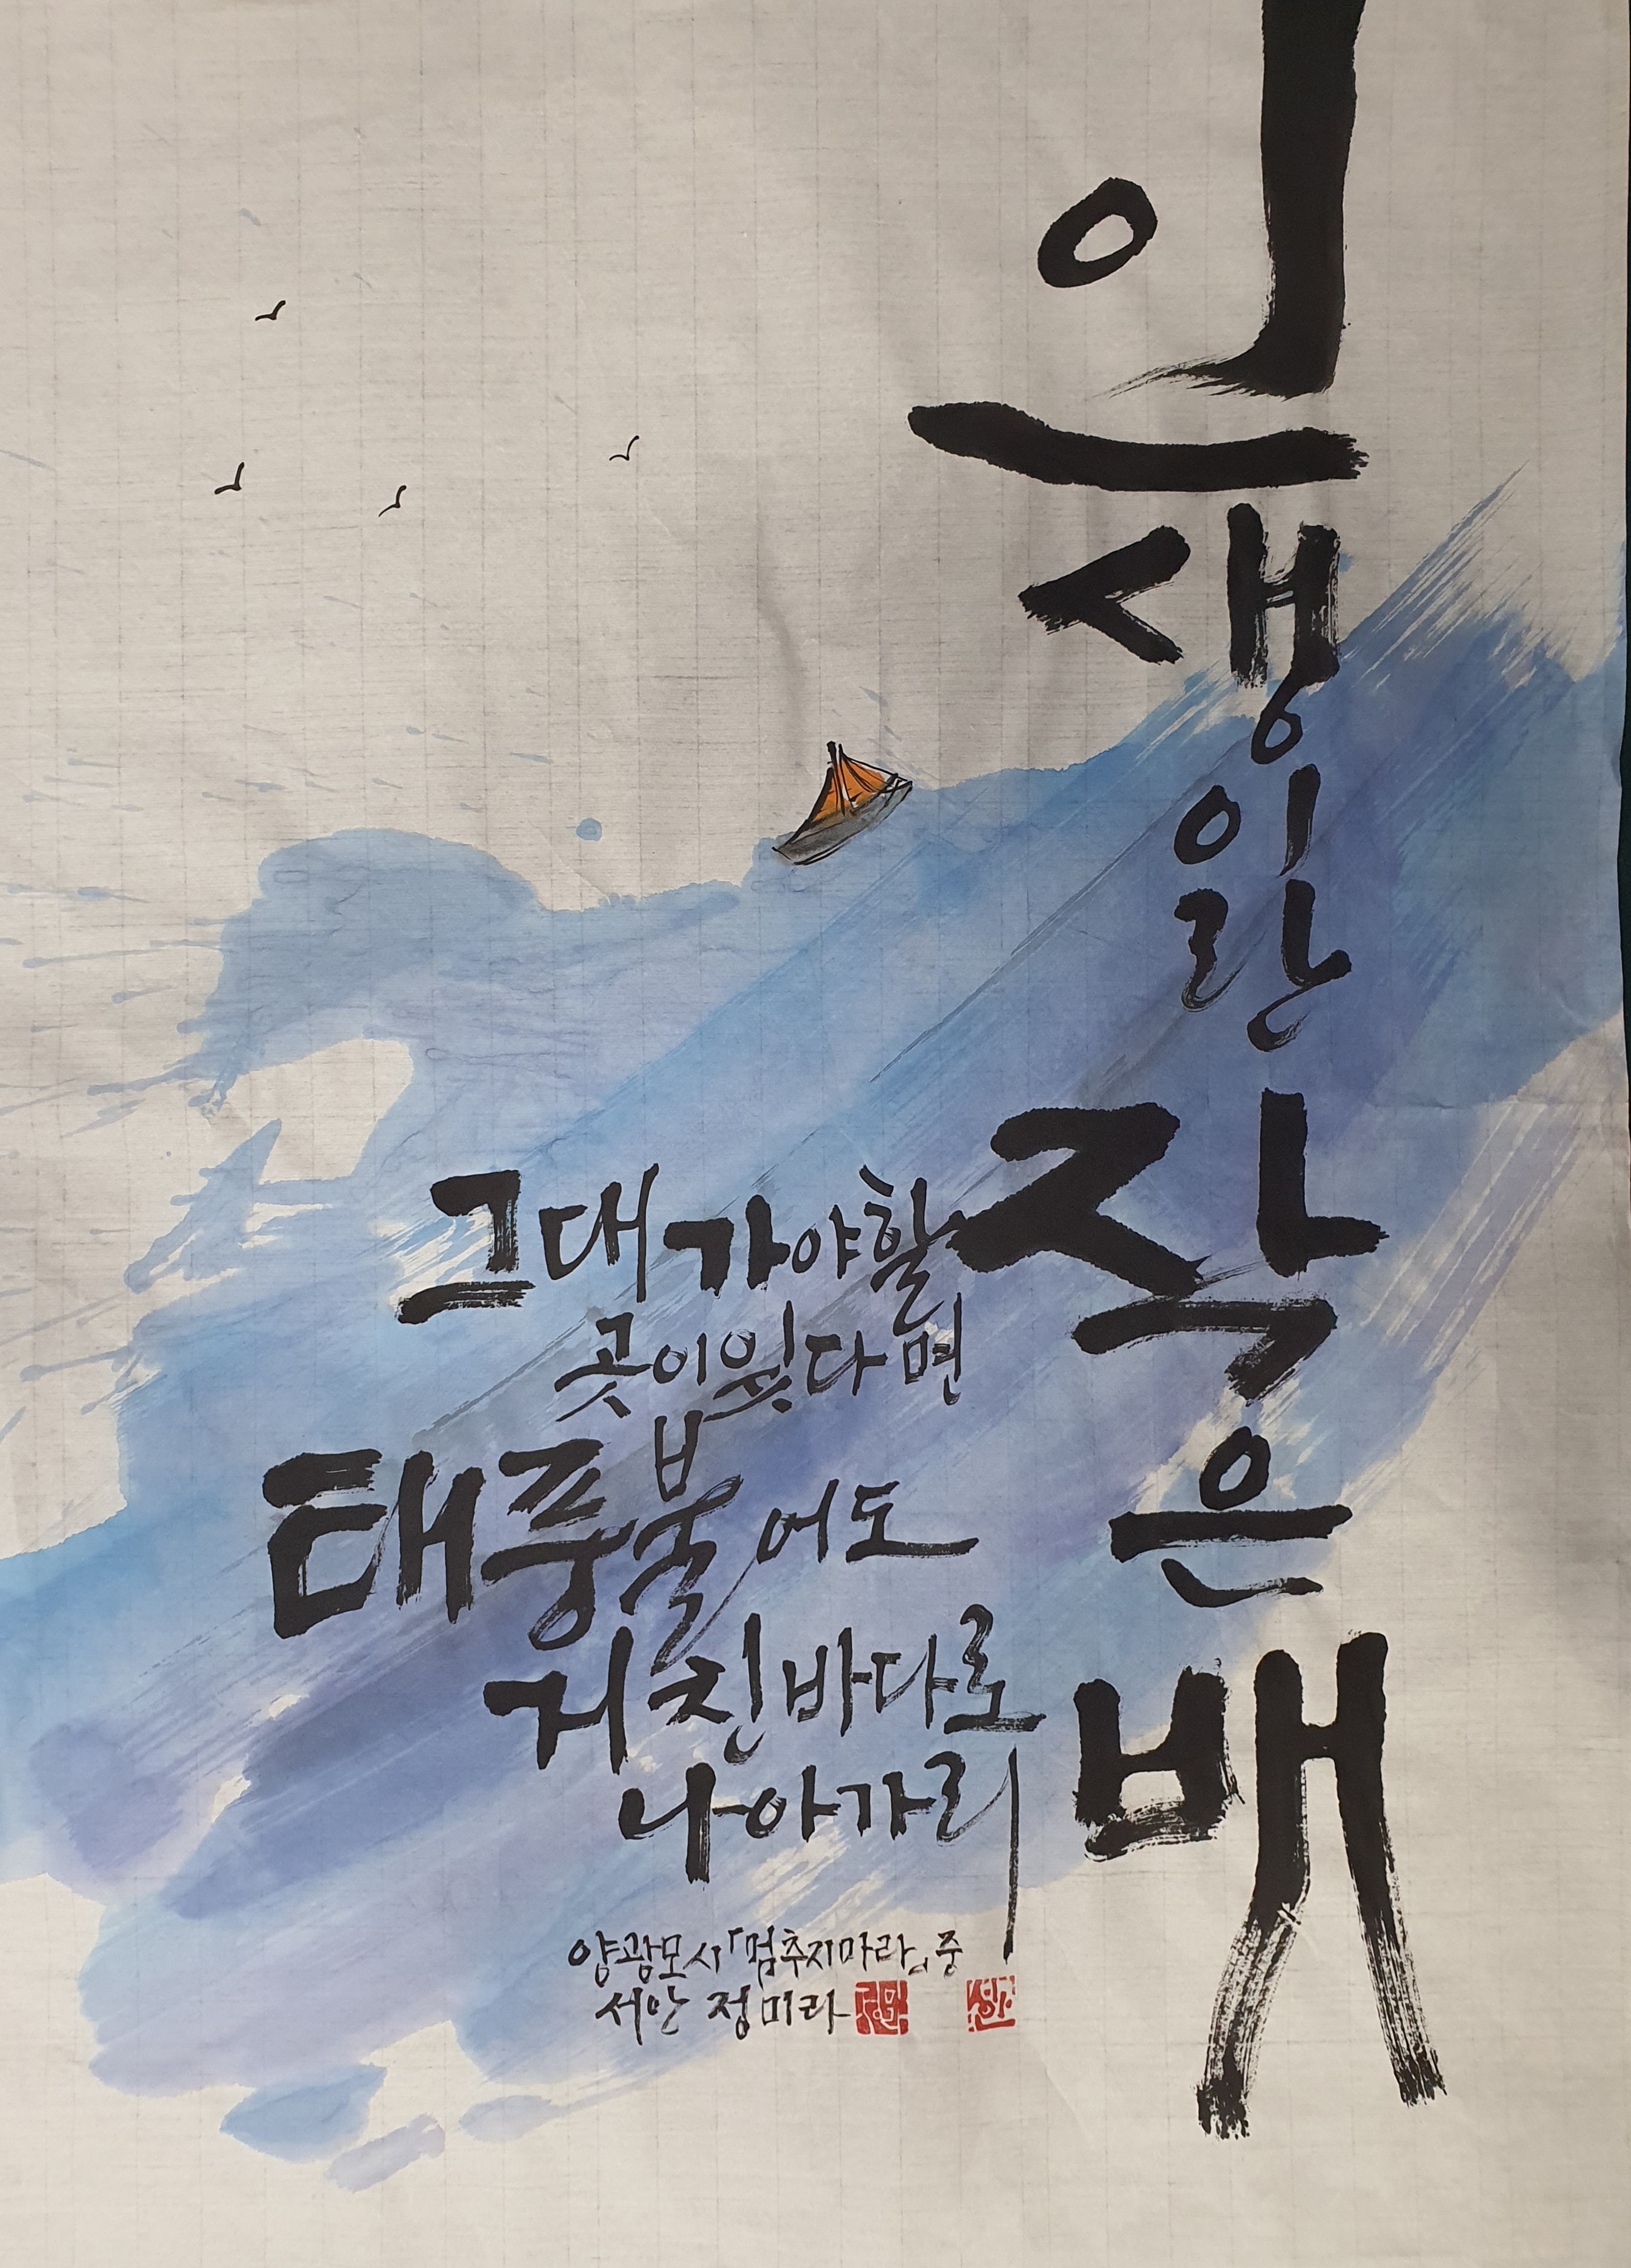 인생이란 작은 배
그대 가야할
곳이 있다면
태풍 불어도
거친 바다로
나아가리
양광모 시 「멈추지마라」 중
서안 정미라